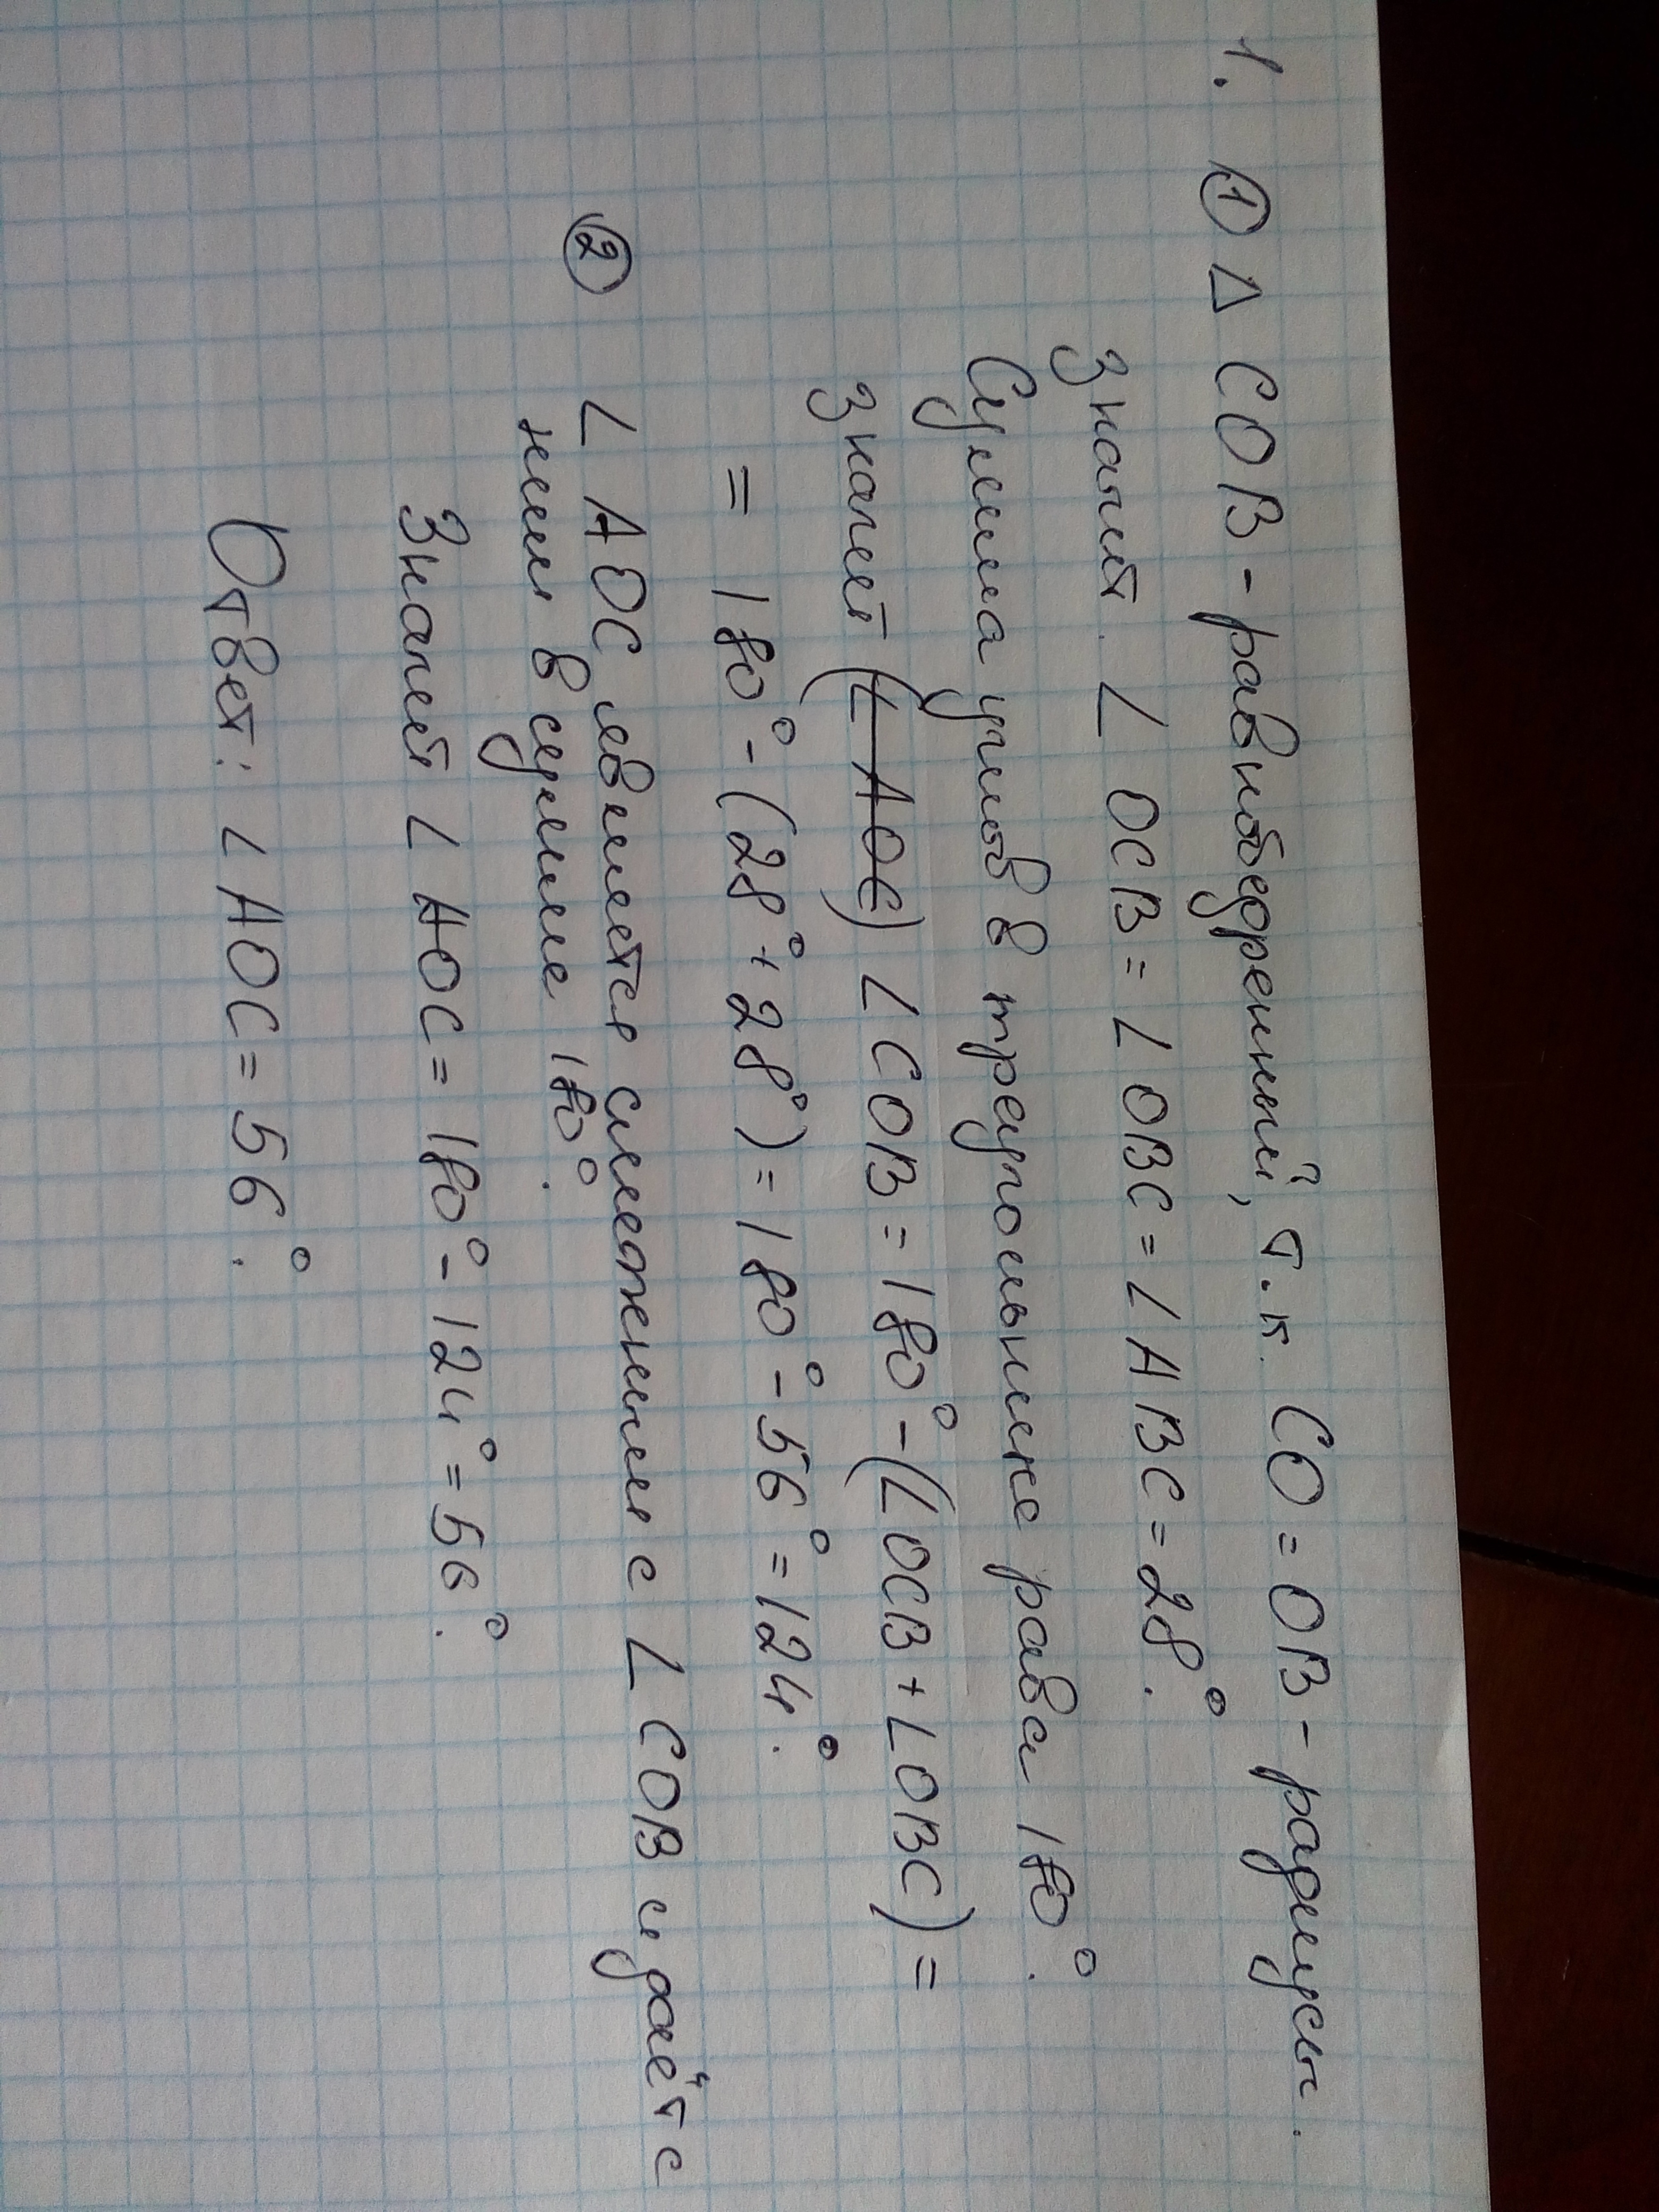 1. ① Δ COB - равнобедренный, т.к. CO = OB - радиусы.
Значит. ∠ OCB = ∠ OBC = ∠ ABC = 28°.
Сумма углов в треугольнике равна 180°.
Значит (∠ AOC) ∠ COB = 180° - (∠OCB + ∠OBC) =
= 180° - (28° + 28°) = 180° - 56° = 124°.
② ∠ AOC является смежным с ∠ COB и даёт с
ним в сумме 180°.
Значит ∠ AOC = 180° - 124° = 56°.
Ответ: ∠ AOC = 56°.